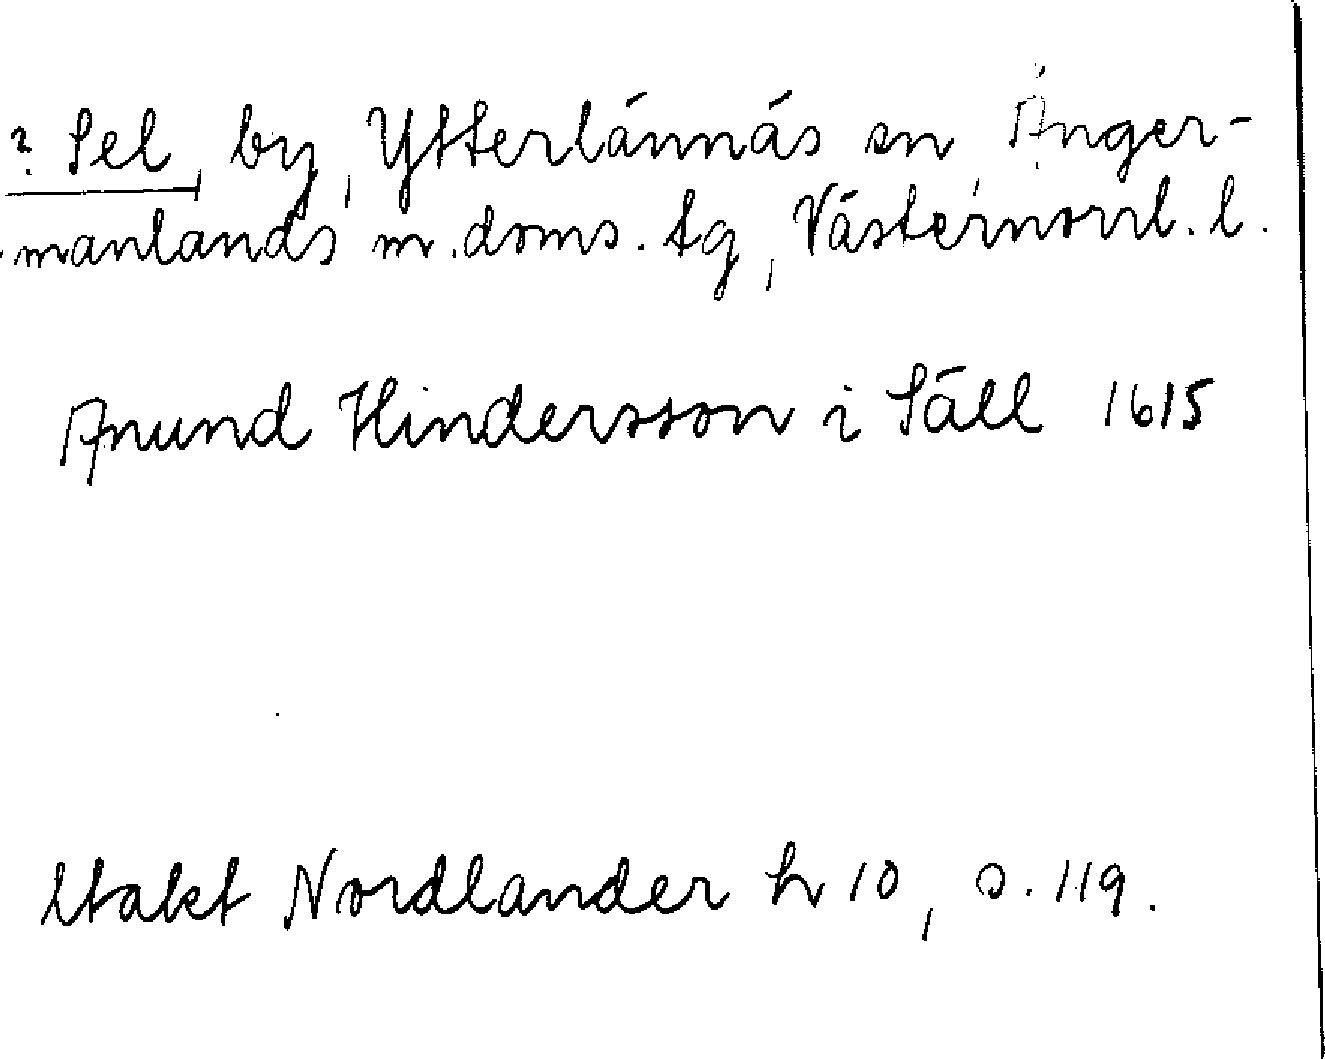 ? Sel, by, Ytterlännäs sn, Ånger-
manlands m. doms. tg, Västernorrl. l.
Anund Hindersson i Säll 1615
Utakt Nordlander h 10, s. 119.